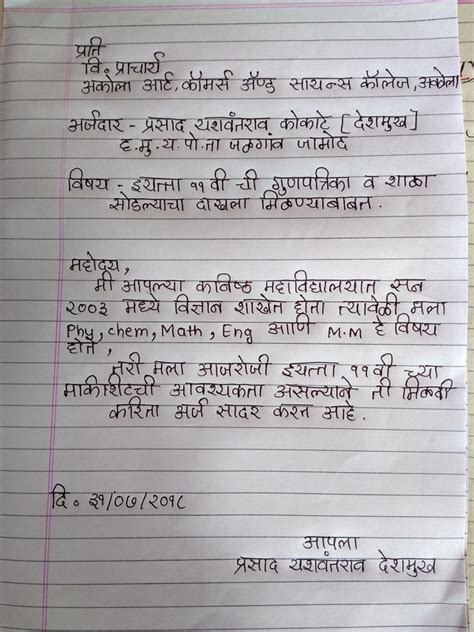 प्रति
वि. प्राचार्य
अकोला आर्ट, कॉमर्स ॲण्ड सायन्स कॉलेज, अकोला
अर्जदार - प्रसाद यशवंतराव कोकाटे [देशमुख]
ह.मु.य.पो.ता जळगांव जामोद
विषय - इयत्ता ११वी ची गुणपत्रिका व शाळा
सोडल्याचा दाखला मिळण्याबाबत.
महोदय,
मी आपल्या कनिष्ठ महाविद्यालयात सन
२००३ मध्ये विज्ञान शाखेत होतो त्यावेळी मला
Phy, chem, Math, Eng आणि M.M हे विषय
होते,
तरी मला आजरोजी इयत्ता ११वी च्या
मार्कशिटची आवश्यकता असल्याने ती मिळवी
करिता अर्ज सादर करत आहे.
दि. ३१/०७/२०१८
आपला
प्रसाद यशवंतराव देशमुख